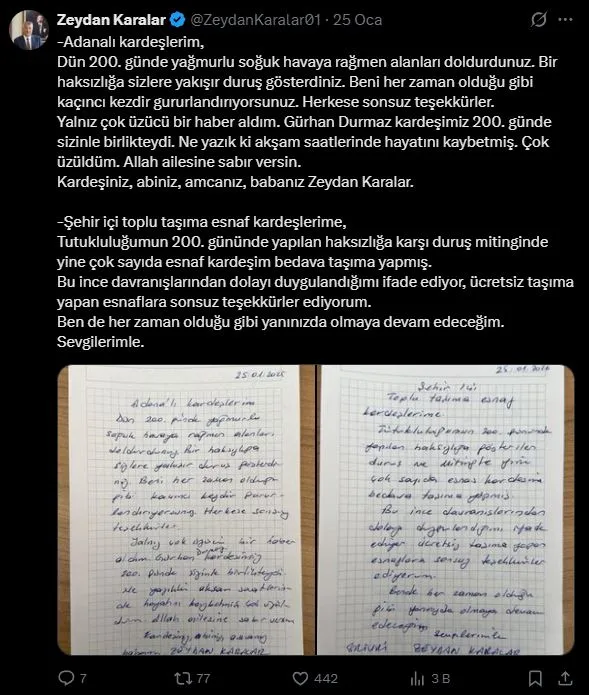 Zeydan Karalar @ZeydanKaralar01 · 25 Oca
-Adanalı kardeşlerim,
Dün 200. günde yağmurlu soğuk havaya rağmen alanları doldurdunuz. Bir
haksızlığa sizlere yakışır duruş gösterdiniz. Beni her zaman olduğu gibi
kaçıncı kezdir gururlandırıyorsunuz. Herkese sonsuz teşekkürler.
Yalnız çok üzücü bir haber aldım. Gürhan Durmaz kardeşimiz 200. günde
sizinle birlikteydi. Ne yazık ki akşam saatlerinde hayatını kaybetmiş. Çok
üzüldüm. Allah ailesine sabır versin.
Kardeşiniz, abiniz, amcanız, babanız Zeydan Karalar.
-Şehir içi toplu taşıma esnaf kardeşlerime,
Tutukluluğumun 200. gününde yapılan haksızlığa karşı duruş mitinginde
yine çok sayıda esnaf kardeşim bedava taşıma yapmış.
Bu ince davranışlarından dolayı duygulandığımı ifade ediyor, ücretsiz taşıma
yapan esnaflara sonsuz teşekkürler ediyorum.
Ben de her zaman olduğu gibi yanınızda olmaya devam edeceğim.
Sevgilerimle.
25.01.2026
Adana'lı kardeşlerim
Dün 200. günde yağmurlu
soğuk havaya rağmen alanları
doldurdunuz. Bir haksızlığa
sizlere yakışır duruş gösterdi
niz. Beni her zaman olduğu
gibi kaçıncı kezdir gurur-
landırıyorsunuz. Herkese sonsuz
teşekkürler.
Yalnız çok üzücü bir haber
aldım Gürhan Durmaz kardeşimiz
200. günde sizinle birlikteydi
Ne yazıkki akşam saatlerin
de hayatını kaybetmiş Çok üzül
düm Allah ailesine sabır versin
Kardeşiniz, abiniz, amcanız
babanız ZEYDAN KARALAR
25.01.2026
Şehir İçi
Toplu taşıma esnaf
kardeşlerime.
Tutukluluğumun 200. gününde
yapılan haksızlığa gösterilen
duruş ve mitingte yine
çok sayıda esnaf kardeşim
bedava taşıma yapmış.
Bu ince davranışlarından
dolayı duygulandığımı ifade
ediyor ücretsiz taşıma yapan
esnaflara sonsuz teşekkürler
ediyorum.
Bende her zaman olduğu
gibi yanınızda olmaya devam
edeceğim.
Sevgilerimle
ZEYDAN KARALAR
7 77 442 3 B